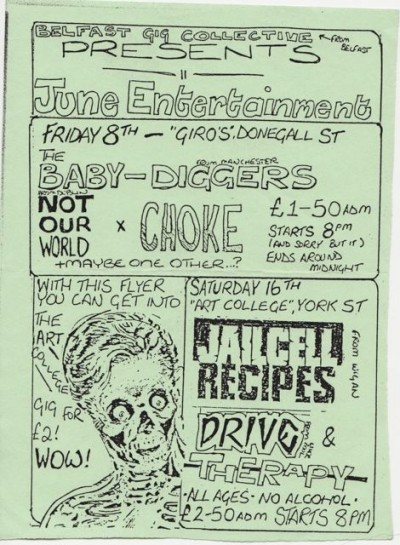 BELFAST GIG COLLECTIVE
FROM BELFAST
PRESENTS
"
June Entertainment
FRIDAY 8TH – "GIRO'S", DONEGALL ST
THE
FROM MANCHESTER
BABY-DIGGERS
FROM DUBLIN
NOT OUR WORLD
x
CHOKE
+MAYBE ONE OTHER...?
£1-50 ADM
STARTS 8PM
(AND SORRY BUT IT)
ENDS AROUND
MIDNIGHT
WITH THIS FLYER
YOU CAN GET INTO
THE
ART
COLLEGE
GIG FOR
£2!
WOW!
SATURDAY 16TH
"ART COLLEGE", YORK ST
JAILCELL
RECIPES
FROM WIGAN
DRIVE
&
THERAPY
·ALL AGES· NO ALCOHOL·
£2-50 ADM STARTS 8PM